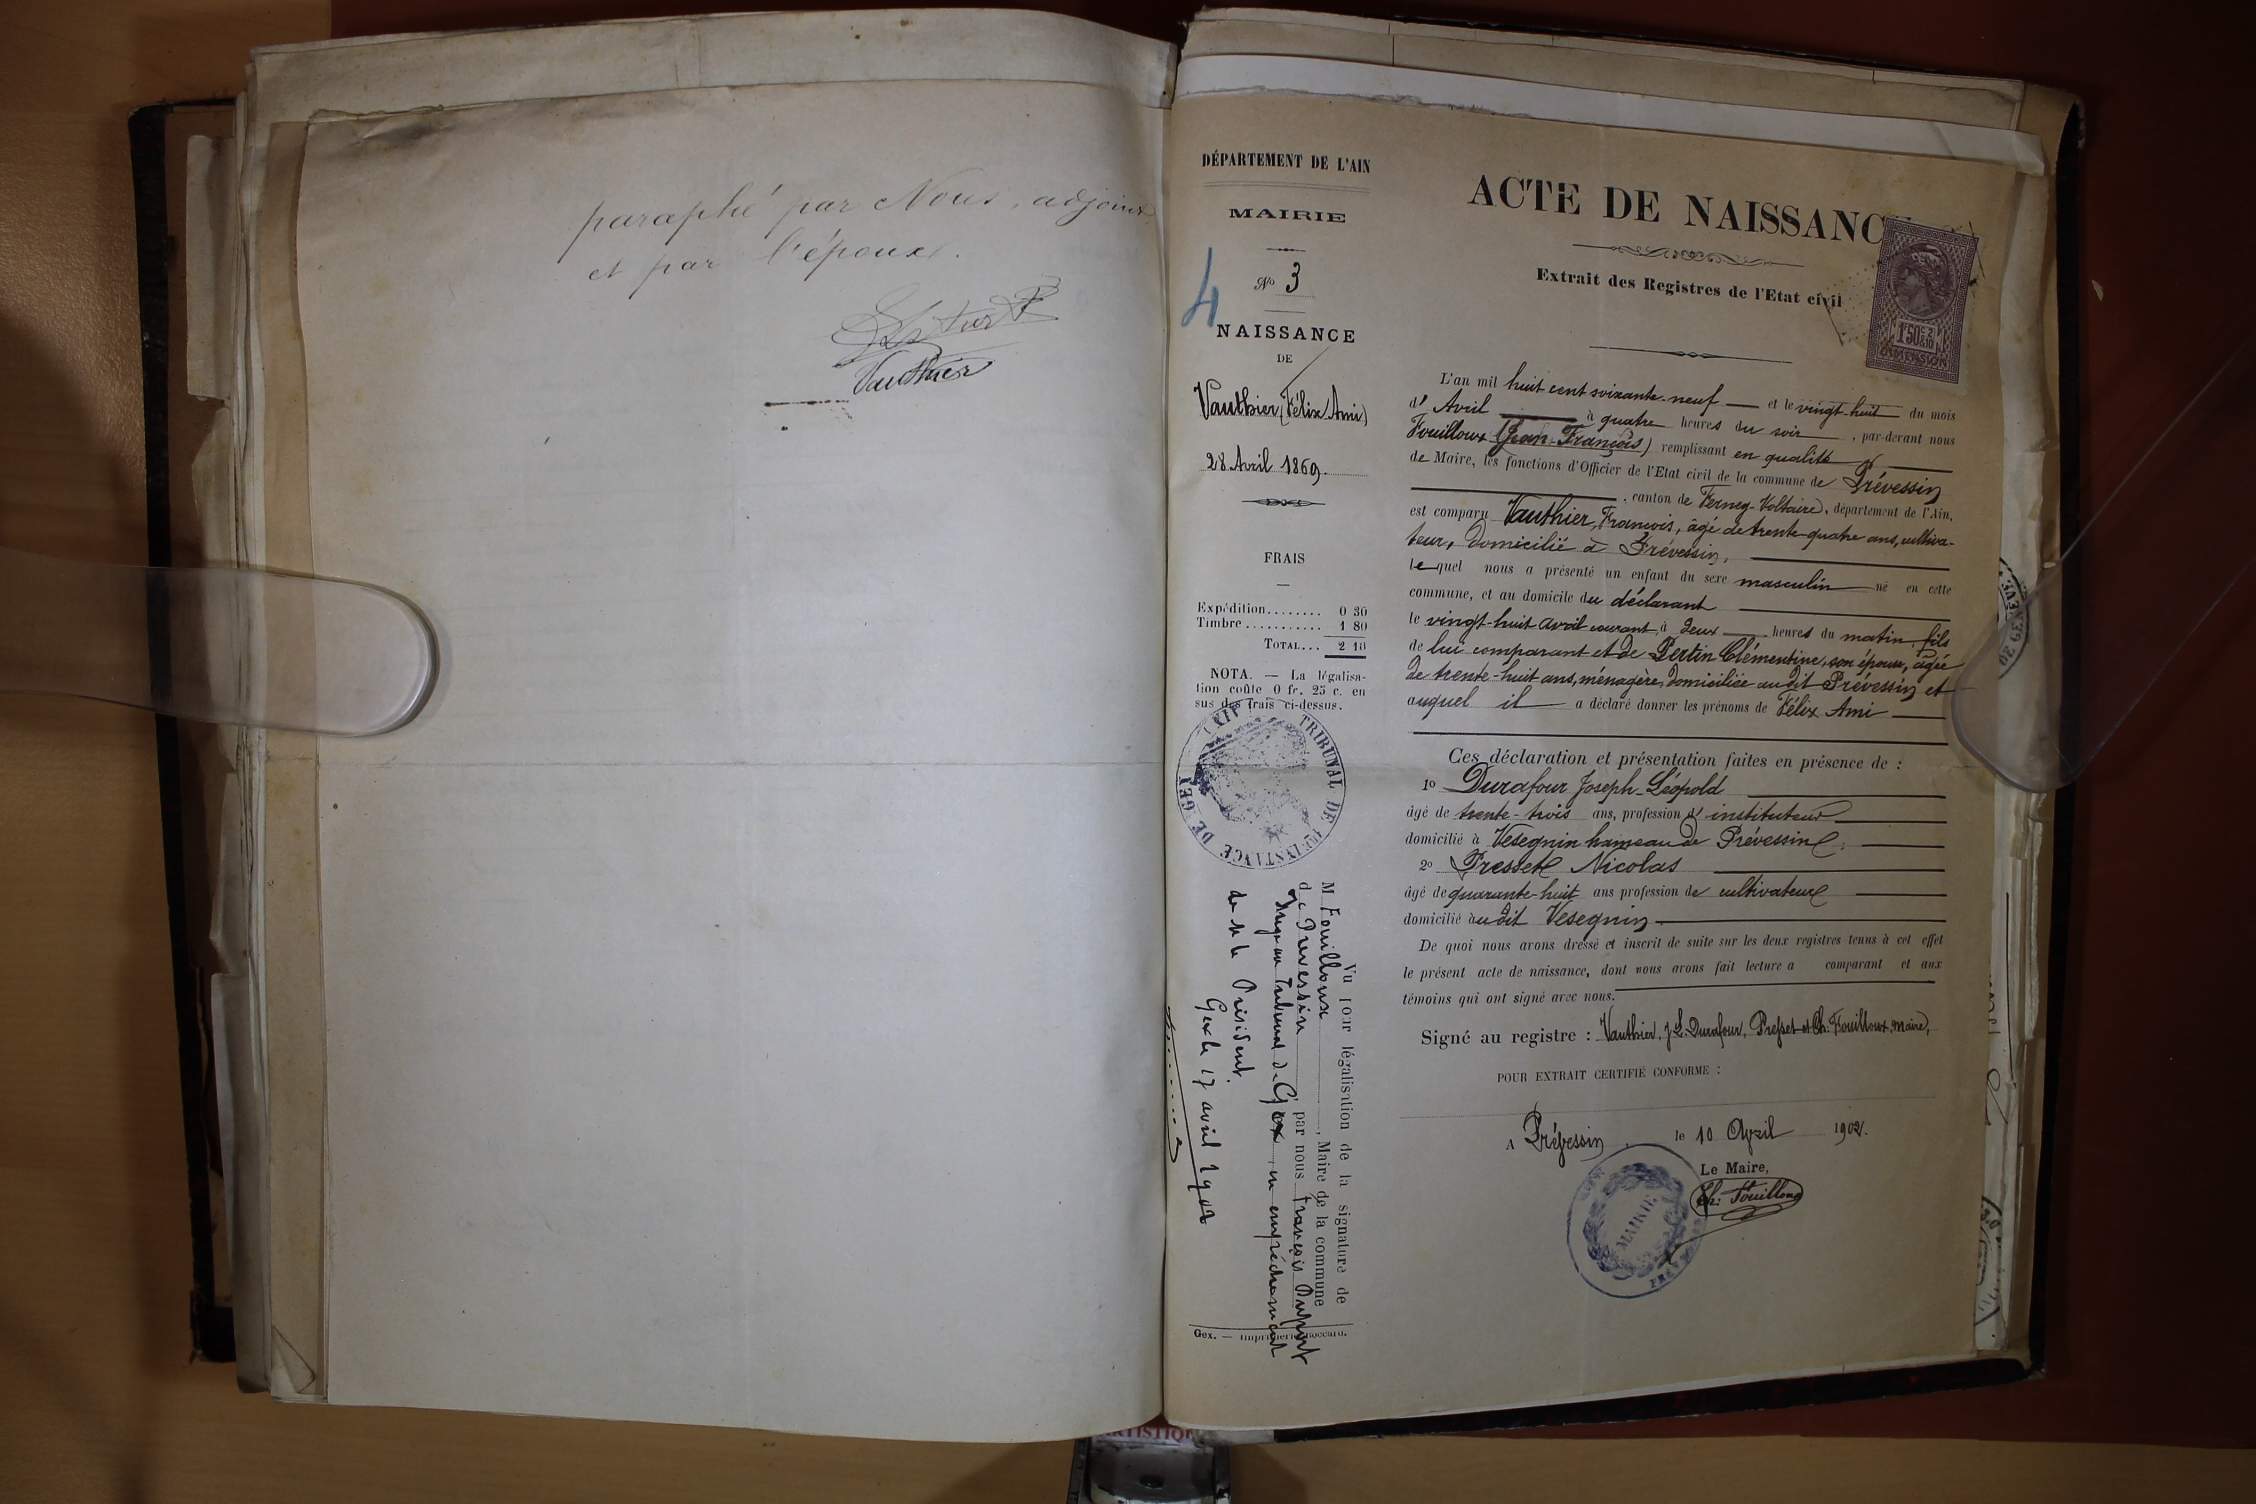 paraphé par Nous, adjoint
et par l'époux.
Vauthier
DÉPARTEMENT DE L'AIN
MAIRIE
4
No 3
NAISSANCE
DE
Vauthier (Félix Ami)
28 Avril 1869.
FRAIS
Expédition........ 0 30
Timbre........... 1 80
TOTAL... 2 10
NOTA. — La légalisa-
tion coûte 0 fr. 25 c. en
sus des frais ci-dessus.
TRIBUNAL DE 1RE INSTANCE DE GEX (AIN)
Vu pour légalisation de la signature de
M Fouilloux, Maire de la commune
de Prévessin par nous François Dupont
Juge au Tribunal de Gex, en empêchement
de M le Président.
Gex le 17 avril 1902
Gex. — Imprimerie
ACTE DE NAISSANC
Extrait des Registres de l'Etat civil
1F50c 2/10
DIMENSION
L'an mil huit cent soixante-neuf et le vingt-huit du mois
d' Avril à quatre heures du soir, par-devant nous
Fouilloux (Jean-François) remplissant en qualité
de Maire, les fonctions d'Officier de l'Etat civil de la commune de Prévessin
, canton de Ferney-Voltaire, département de l'Ain,
est comparu Vauthier, François, âgé de trente-quatre ans, cultiva-
teur, domicilié à Prévessin,
lequel nous a présenté un enfant du sexe masculin né en cette
commune, et au domicile du déclarant
le vingt-huit avril courant, à deux heures du matin, fils
de lui comparant et de Pertin Clémentine, son épouse, âgée
de trente-huit ans, ménagère, domiciliée au dit Prévessin et
auquel il a déclaré donner les prénoms de Félix Ami
Ces déclaration et présentation faites en présence de :
1o Durafour Joseph-Léopold
âgé de trente-trois ans, profession d' instituteur
domicilié à Vesegnin hameau de Prévessin
2o Presset Nicolas
âgé de quarante-huit ans profession de cultivateur
domicilié au dit Vesegnin
De quoi nous avons dressé et inscrit de suite sur les deux registres tenus à cet effet
le présent acte de naissance, dont nous avons fait lecture a comparant et aux
témoins qui ont signé avec nous.
Signé au registre : Vauthier, J. L. Durafour, Presset et Ch. Fouilloux, maire,
POUR EXTRAIT CERTIFIÉ CONFORME :
A Prévessin, le 10 Avril 1902.
Le Maire,
Ch: Fouilloux
MAIRIE